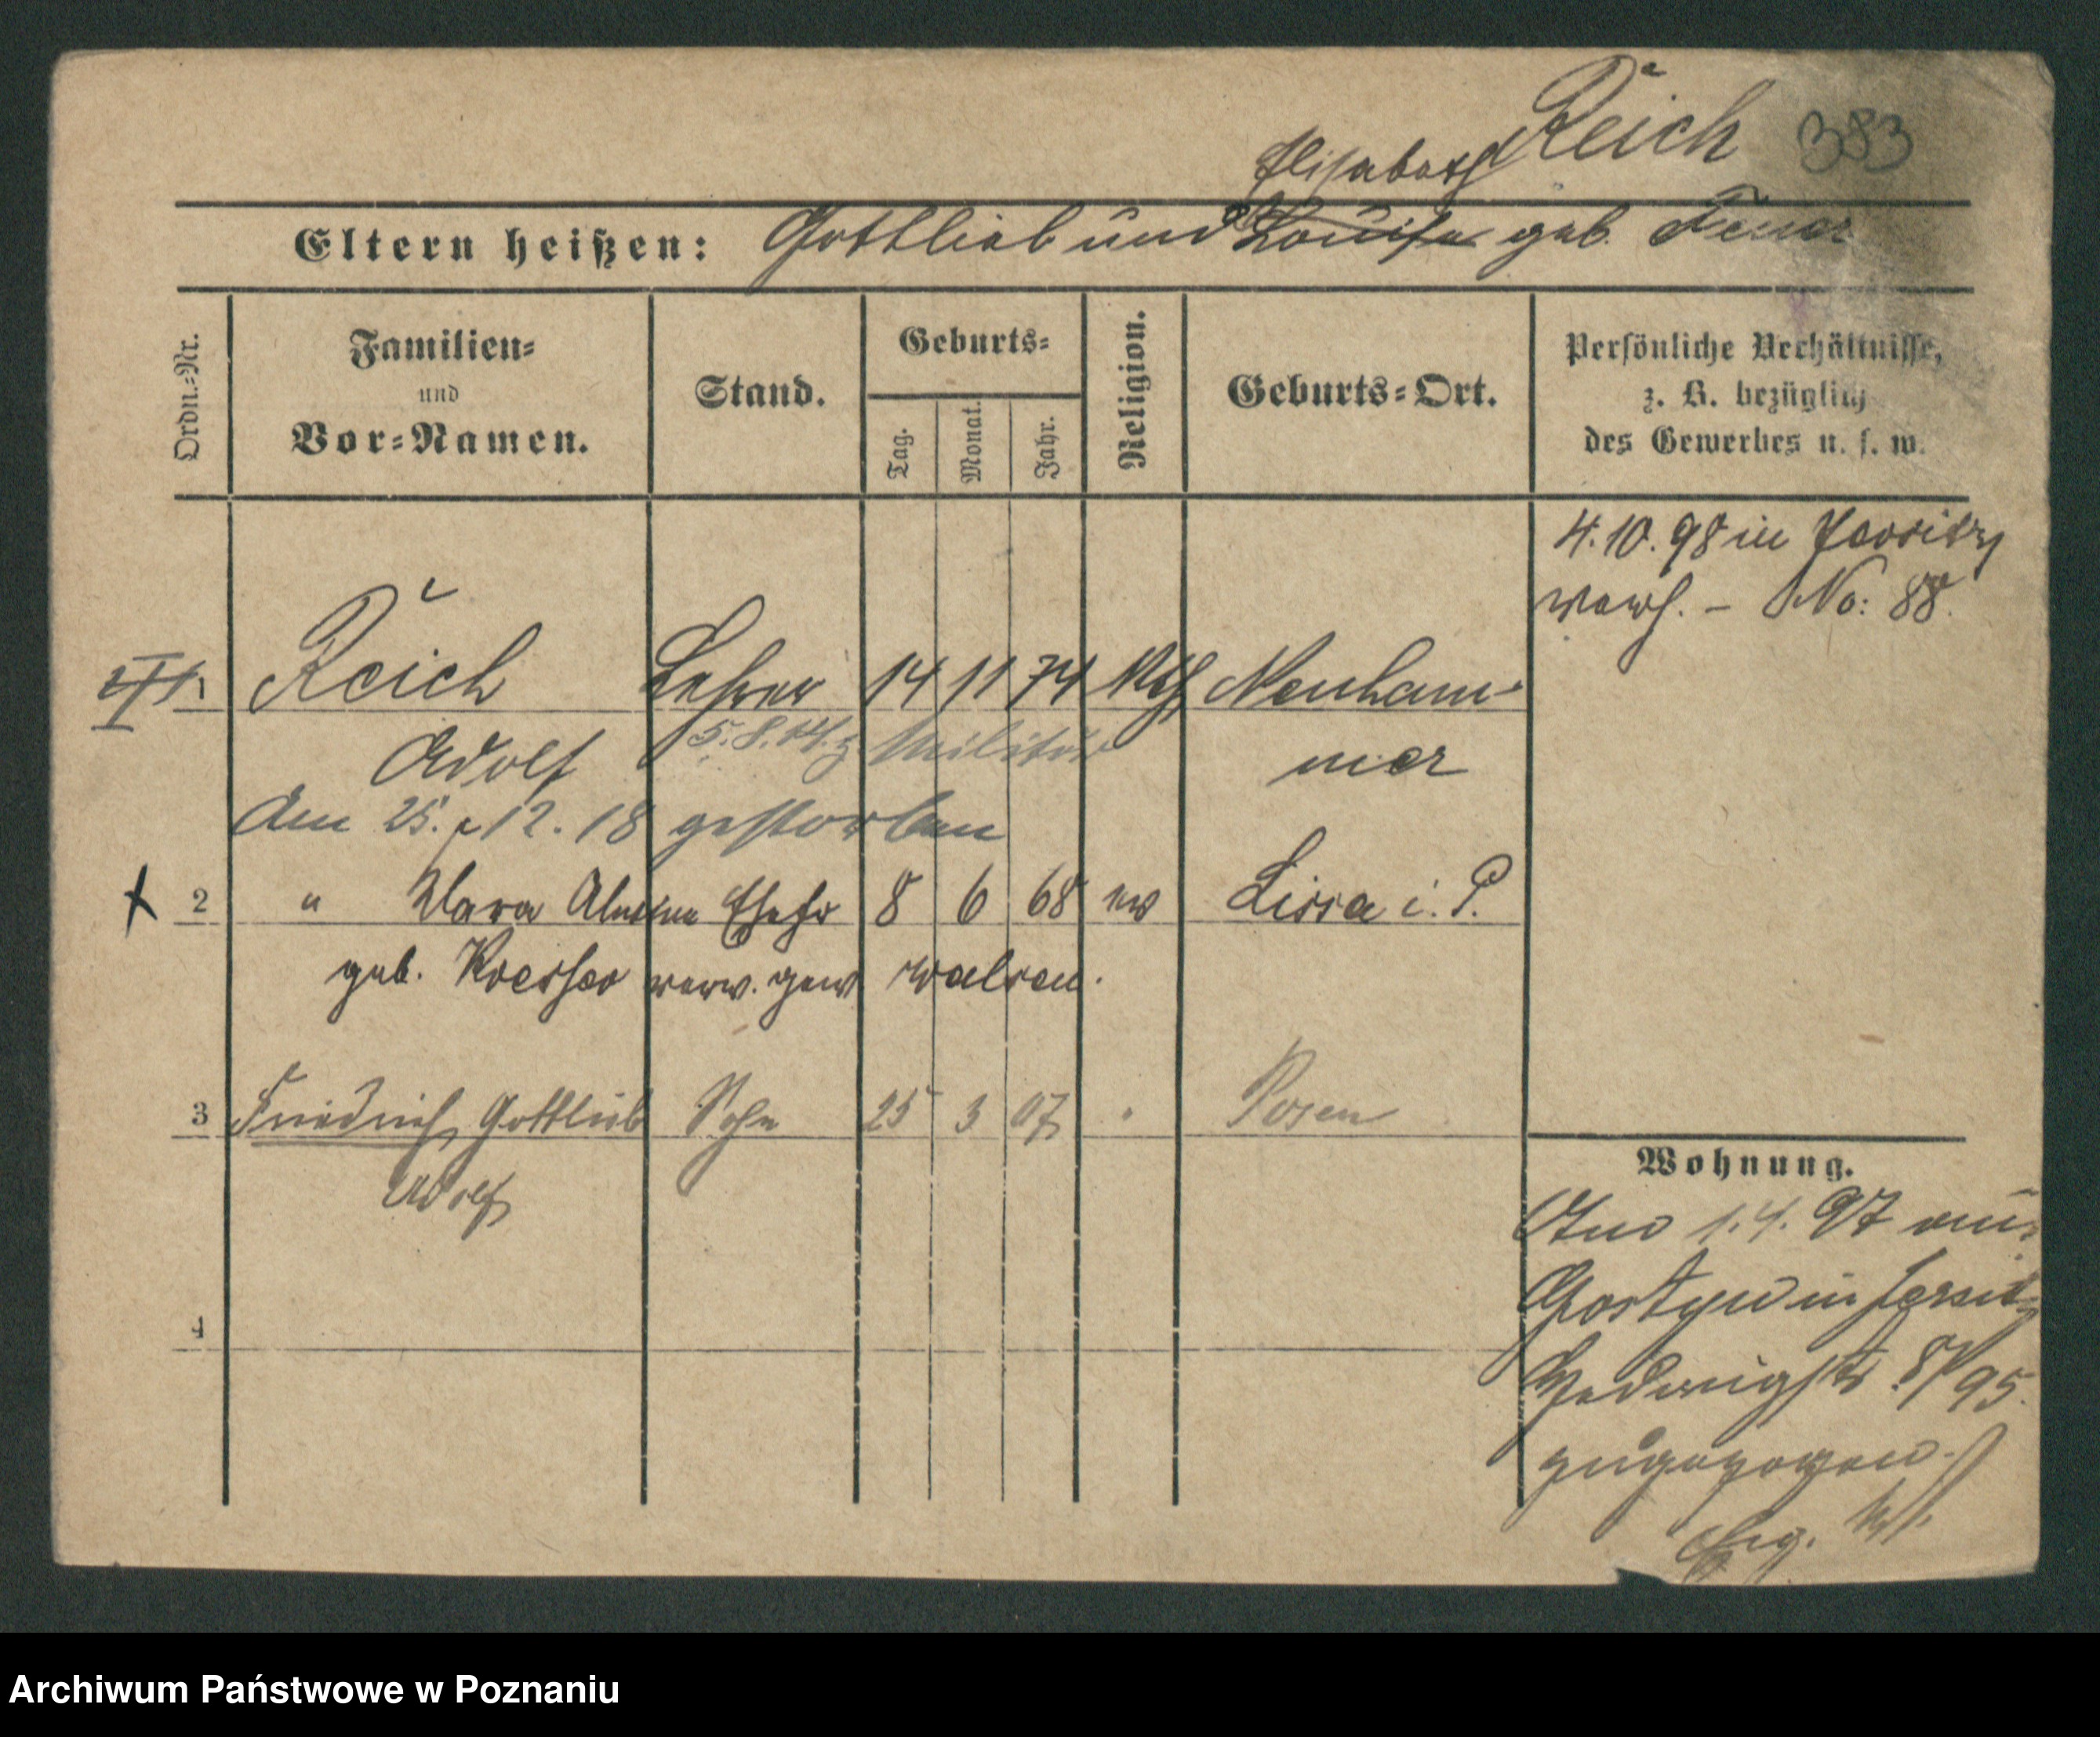 Reich 383
Elisabeth
Eltern heißen: Gottlieb und Louise geb.
Ordn.-Nr.
Familien-
und
Vor-Namen.
Stand.
Geburts-
Tag.
Monat.
Jahr.
Religion.
Geburts-Ort.
Persönliche Verhältnisse,
z. B. bezüglich
des Gewerbes u. s. w.
4.10.98 in Jersitz
verh. – No: 88.
1 Reich Lehrer 14 11 74 Neuham-
Adolf 5.8.14. z. Militär mer
Am 25. 12. 18 gestorben
2 " Clara Ehefr 8 6 68 ev Lissa i. P.
geb. verw. gew.
3 Friedrich Gottlieb Sohn 25 3 07 " Posen
Adolf
4
Wohnung.
1.4.97 aus
Gostyn in Jersitz
Hedwigstr. 8/95.
zugezogen.
Archiwum Państwowe w Poznaniu